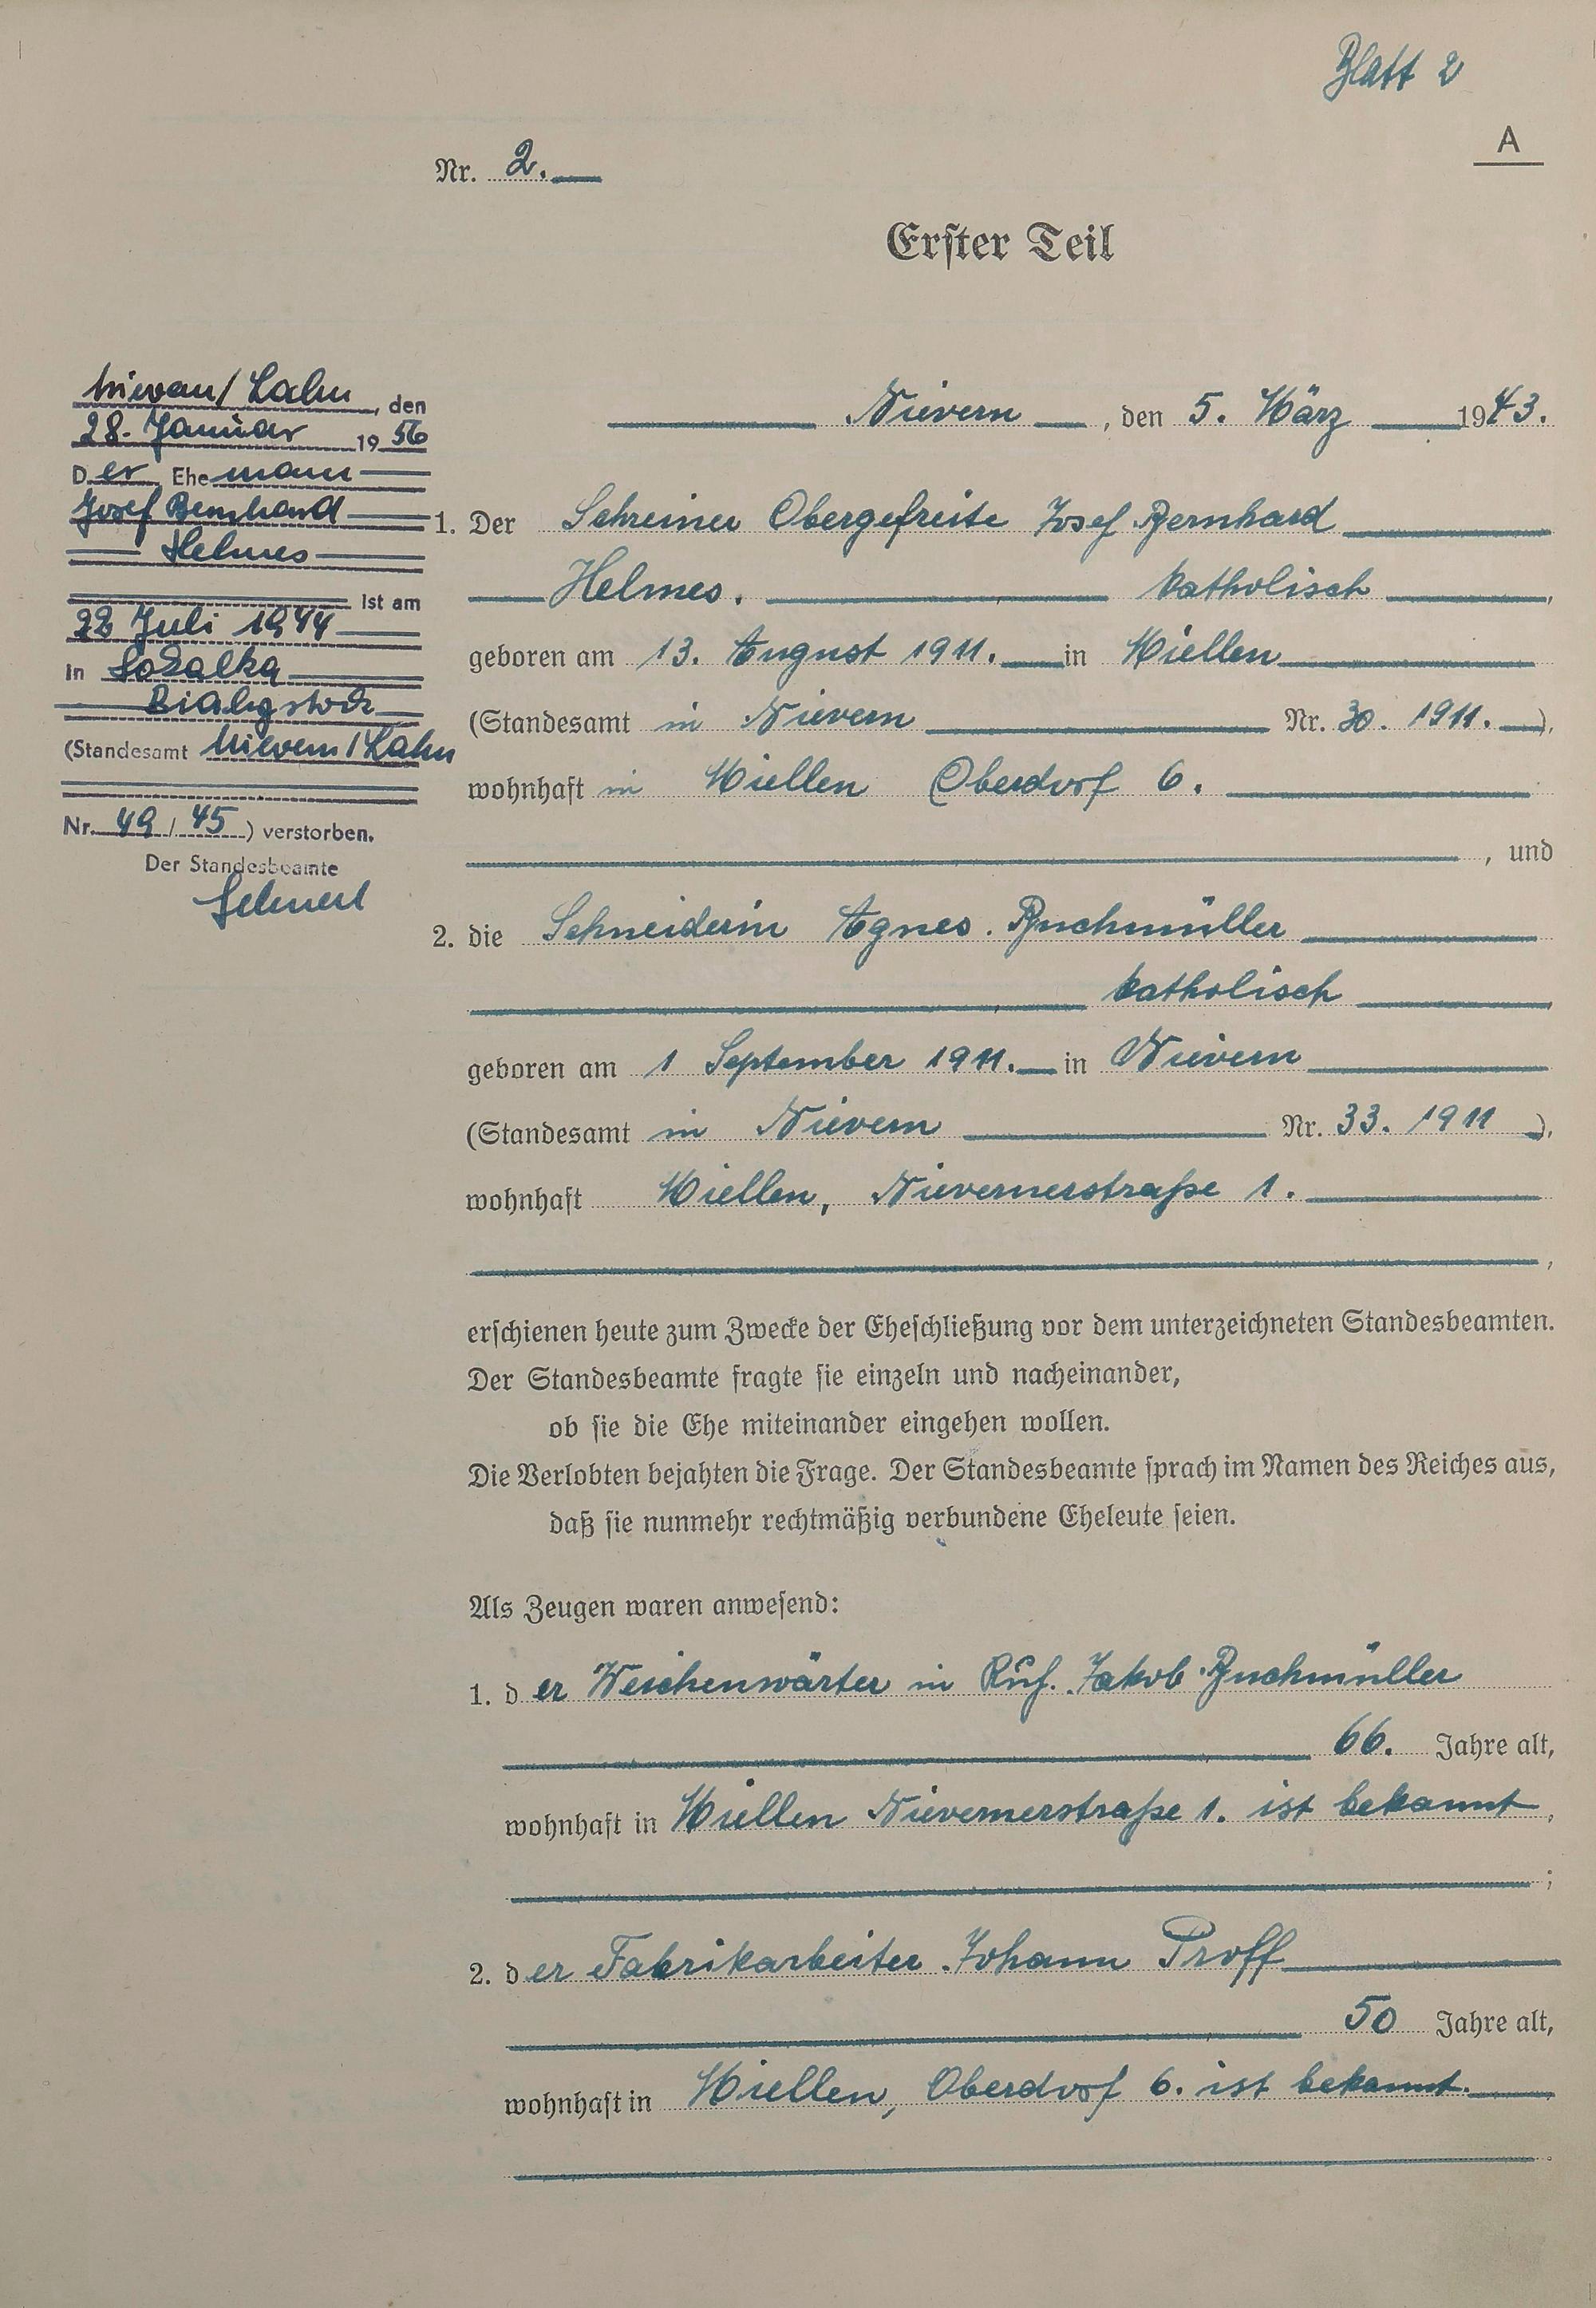 Blatt 2
A
Nr. 2.
Erster Teil
Nievern, den 5. März 1943.
1. Der Schreiner Obergefreite Josef Bernhard
Helmes. katholisch,
geboren am 13. August 1911. in Miellen
(Standesamt in Nievern Nr. 30. 1911.),
wohnhaft in Miellen Oberdorf 6.
, und
2. die Schneiderin Agnes. Buchmüller
katholisch,
geboren am 1 September 1911. in Nievern
(Standesamt in Nievern Nr. 33. 1911),
wohnhaft Miellen, Nievernerstraße 1.
,
erschienen heute zum Zwecke der Eheschließung vor dem unterzeichneten Standesbeamten.
Der Standesbeamte fragte sie einzeln und nacheinander,
ob sie die Ehe miteinander eingehen wollen.
Die Verlobten bejahten die Frage. Der Standesbeamte sprach im Namen des Reiches aus,
daß sie nunmehr rechtmäßig verbundene Eheleute seien.
Als Zeugen waren anwesend:
1. der Weichenwärter in Ruf. Jakob Buchmüller
66. Jahre alt,
wohnhaft in Miellen Nievernerstraße 1. ist bekannt,
;
2. der Fabrikarbeiter Johann Proff
50 Jahre alt,
wohnhaft in Miellen, Oberdorf 6. ist bekannt.
.
Nievern/Lahn, den
28. Januar 1956
Der Ehemann
Josef Bernhard
Helmes
ist am
22 Juli 1944
in
Bialystok
(Standesamt Nievern/Lahn
Nr. 49/45) verstorben.
Der Standesbeamte